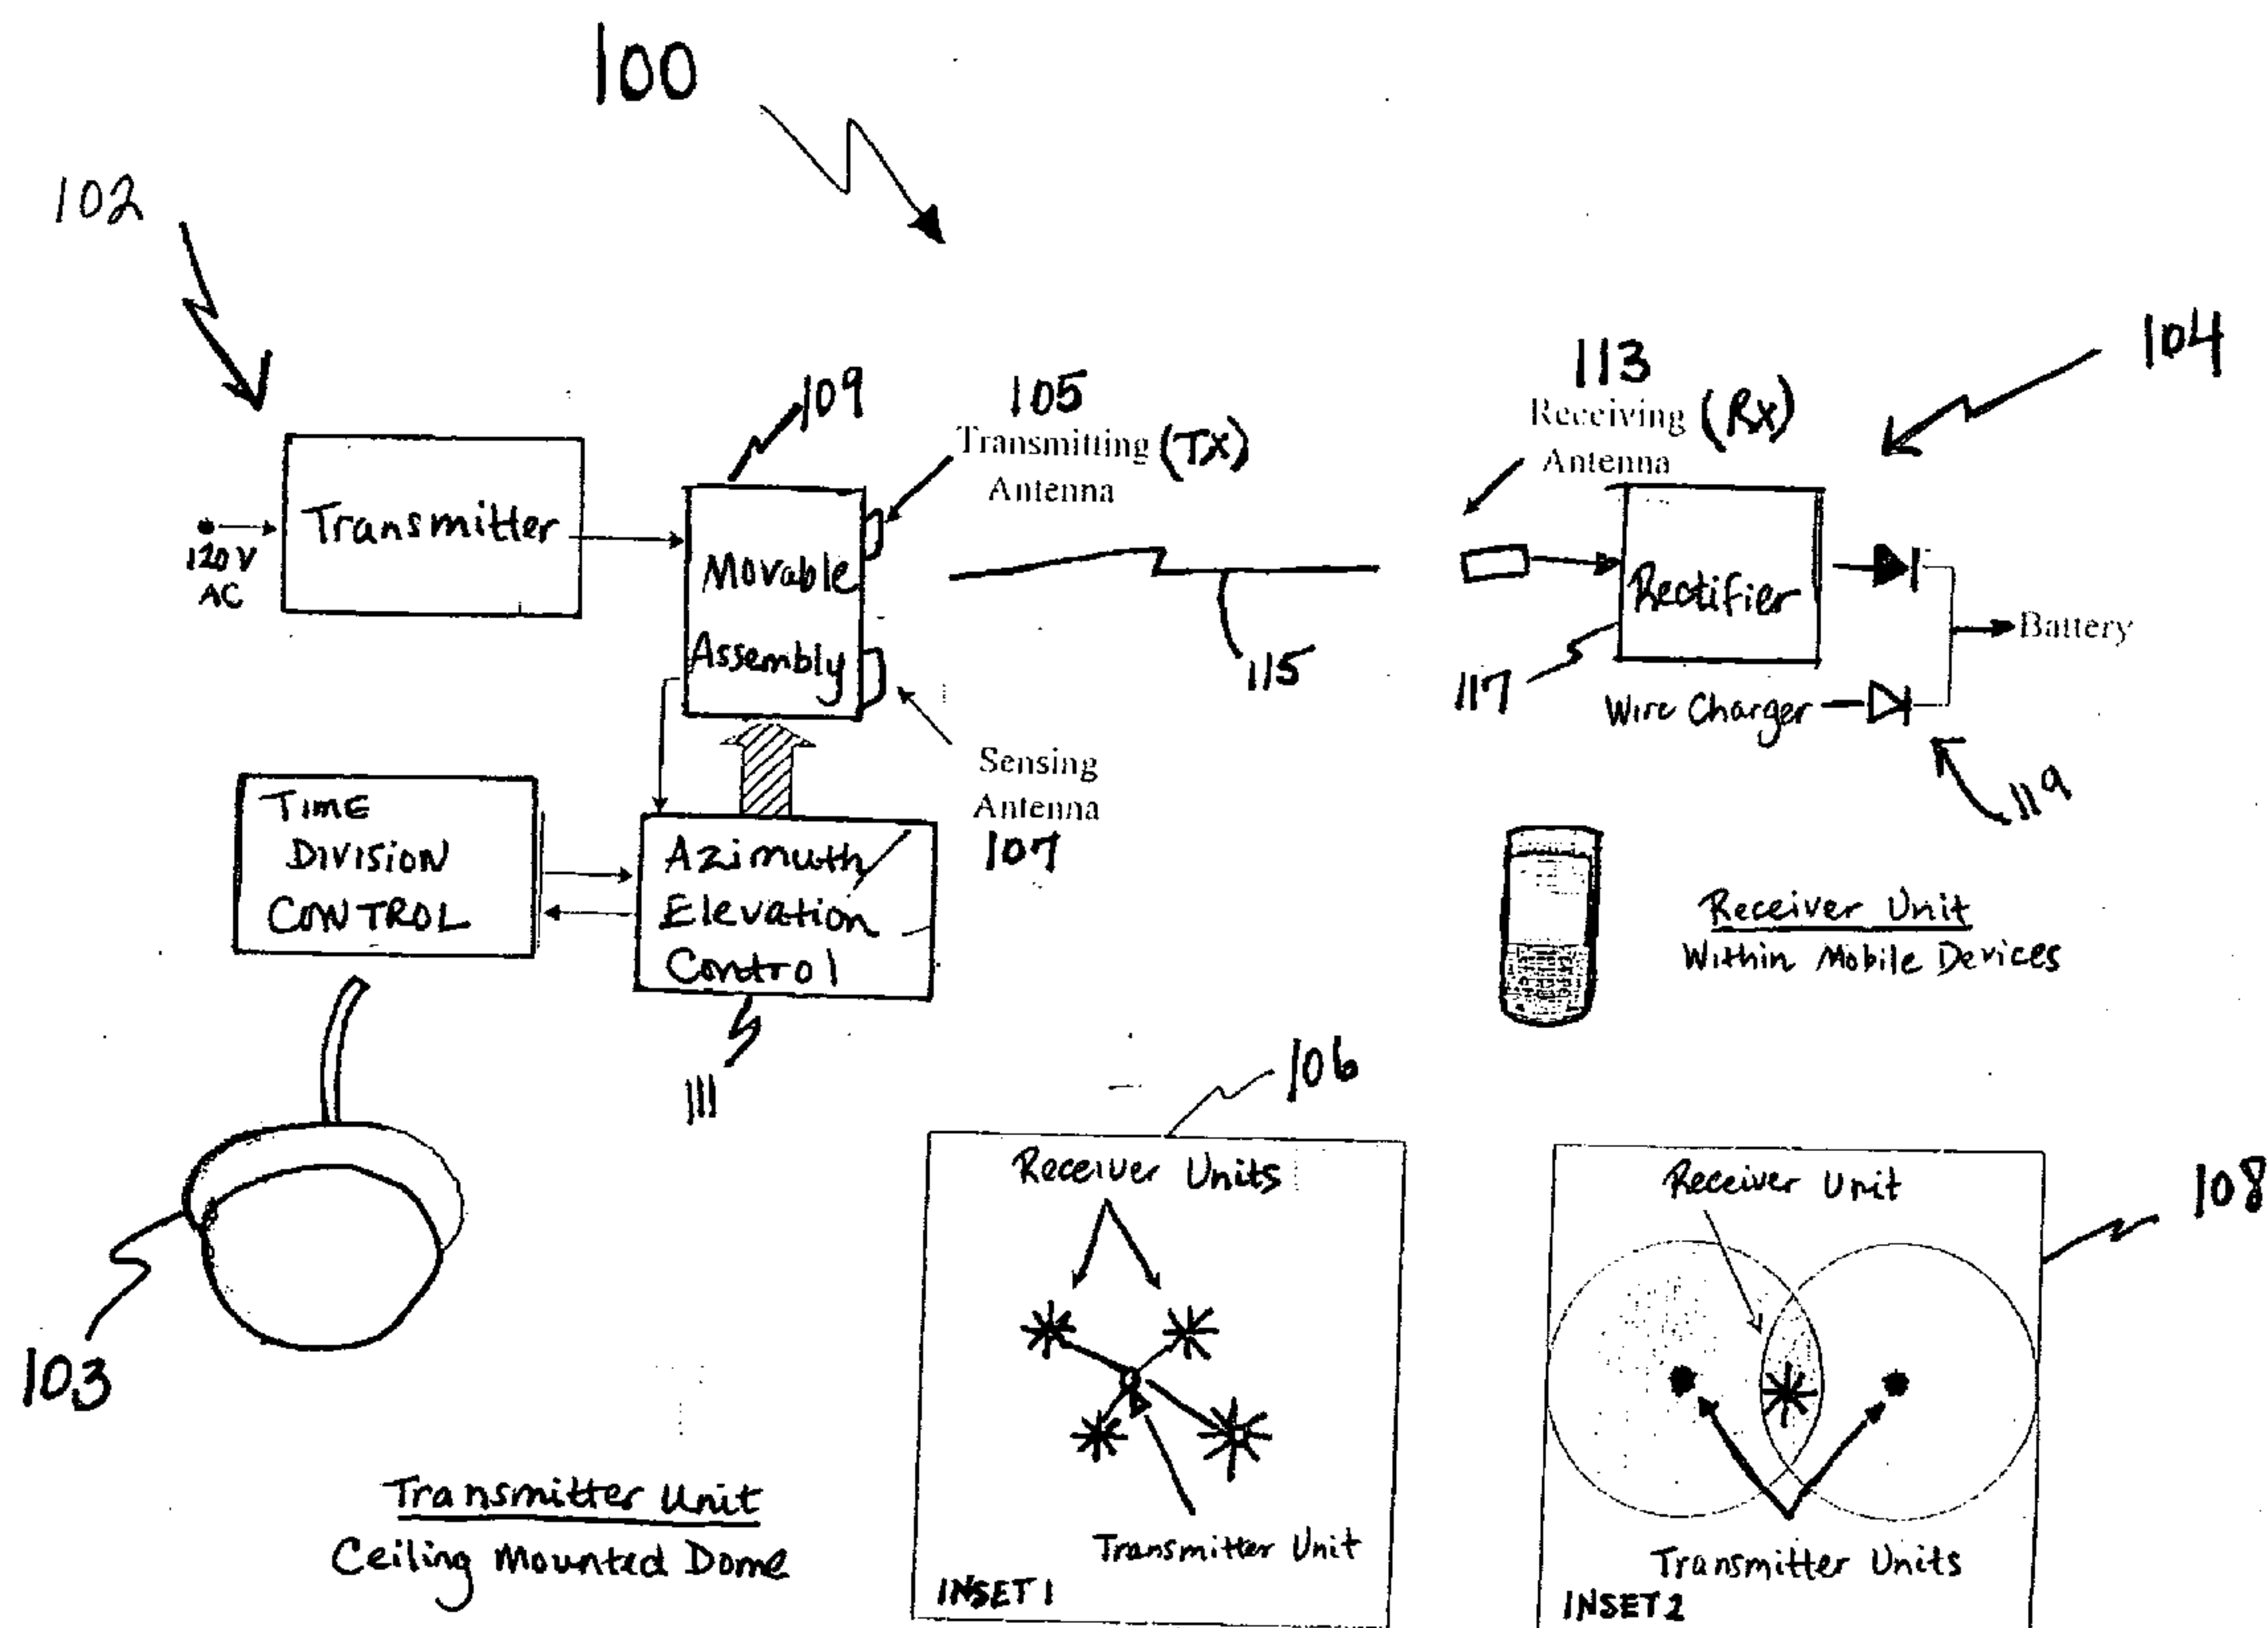 100
102
109
105
Transmitting (TX)
Antenna
113
Receiving (Rx)
Antenna
104
120 V
AC
Transmitter
Movable
Assembly
115
Rectifier
117
Battery
Wire Charger
119
Sensing
Antenna
107
TIME
DIVISION
CONTROL
Azimuth/
Elevation
Control
111
Receiver Unit
Within Mobile Devices
103
Transmitter Unit
Ceiling Mounted Dome
106
Receiver Units
Transmitter Unit
INSET 1
108
Receiver Unit
Transmitter Units
INSET 2